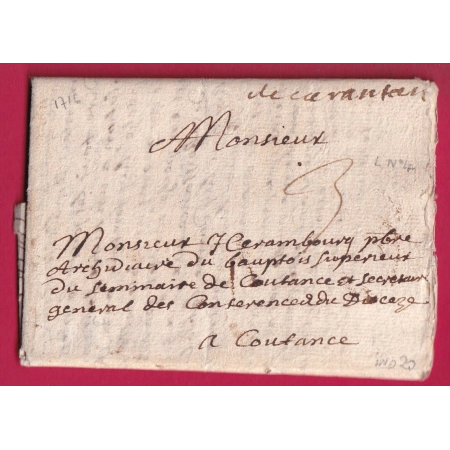 1712
de carantan
Monsieur
L N°14
3
Monsieur J Cerambourg pbre
Archidiacre du bauptois superieur
du seminaire de Coutance et secretair
general des Conferences du Dioceze
a Coutance
IND 20